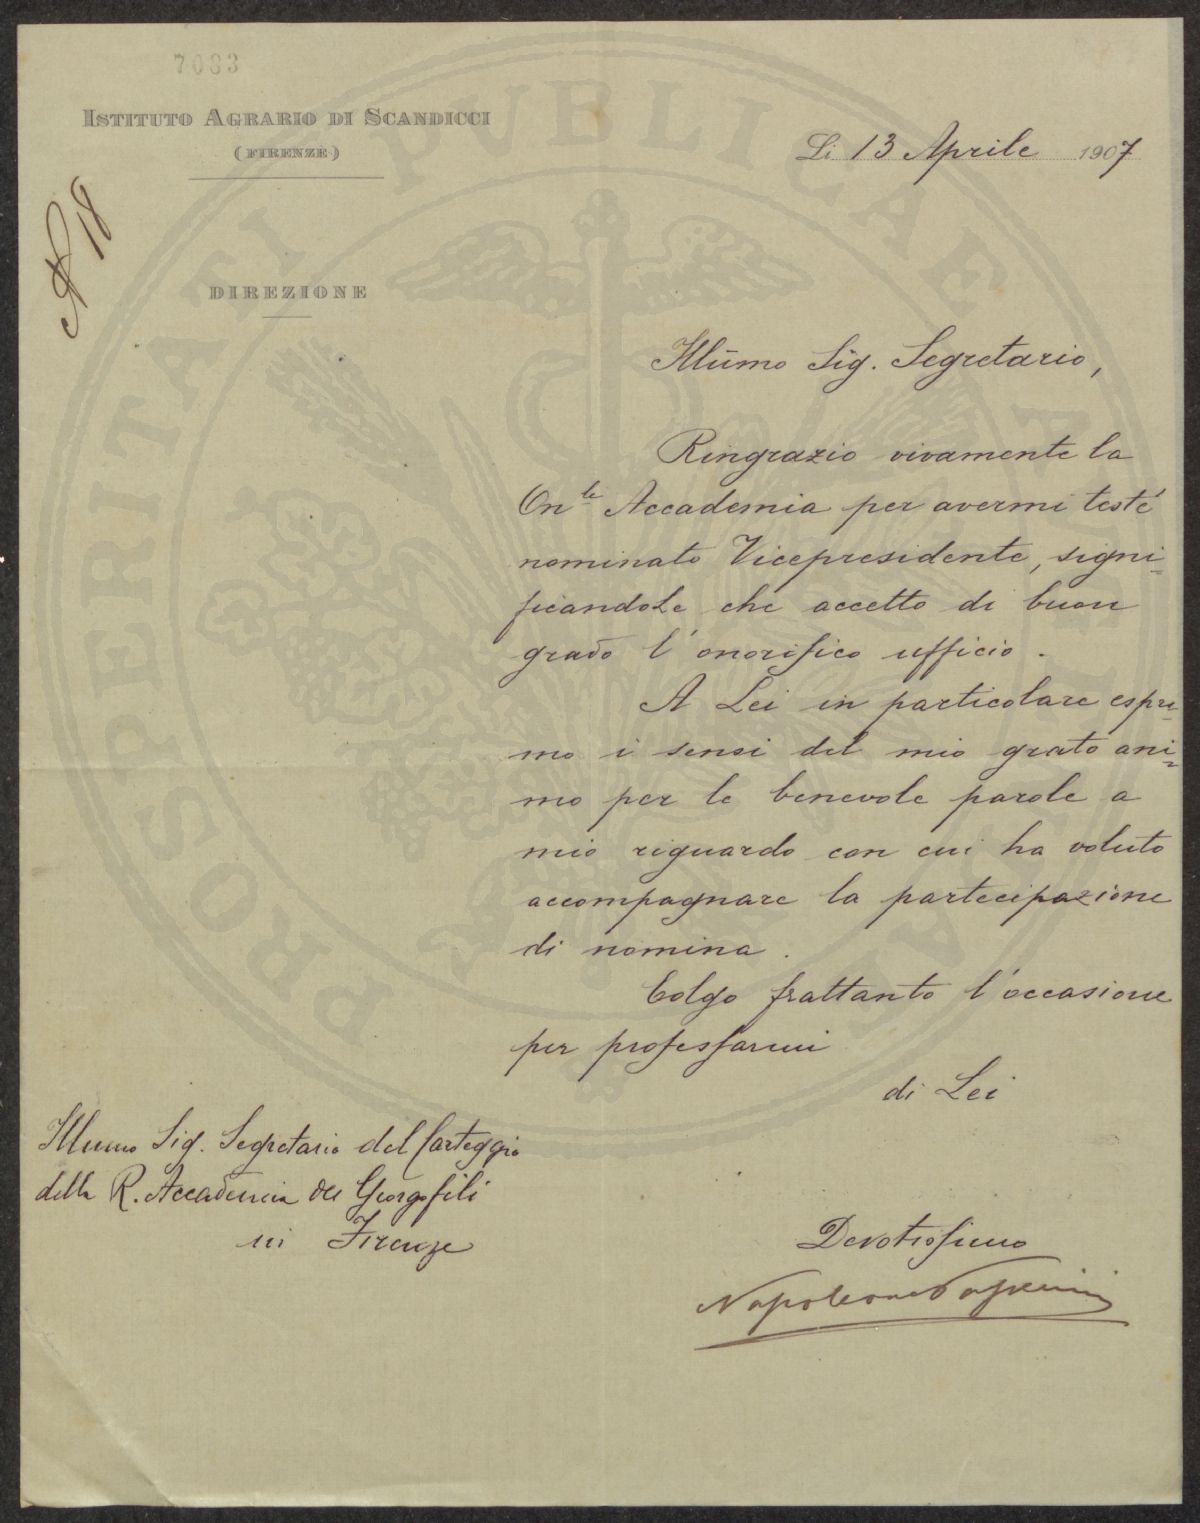 7083
ISTITUTO AGRARIO DI SCANDICCI
(FIRENZE)
Li 13 Aprile 1907
N 18
DIREZIONE
Illu͞mo Sig. Segretario,
Ringrazio vivamente la
On.le Accademia per avermi testé
nominato Vicepresidente, signi=
ficandole che accetto di buon
grado l'onorifico ufficio.
A Lei in particolare espri=
mo i sensi del mio grato ani=
mo per le benevole parole a
mio riguardo con cui ha voluto
accompagnare la partecipazione
di nomina.
Colgo frattanto l'occasione
per professarmi
di Lei
Illumo Sig. Segretario del Carteggio
della R. Accademia dei Georgofili
in Firenze
Devotissimo
Napoleone Passerini
PROSPERITATI PUBLICAE AUGENDAE